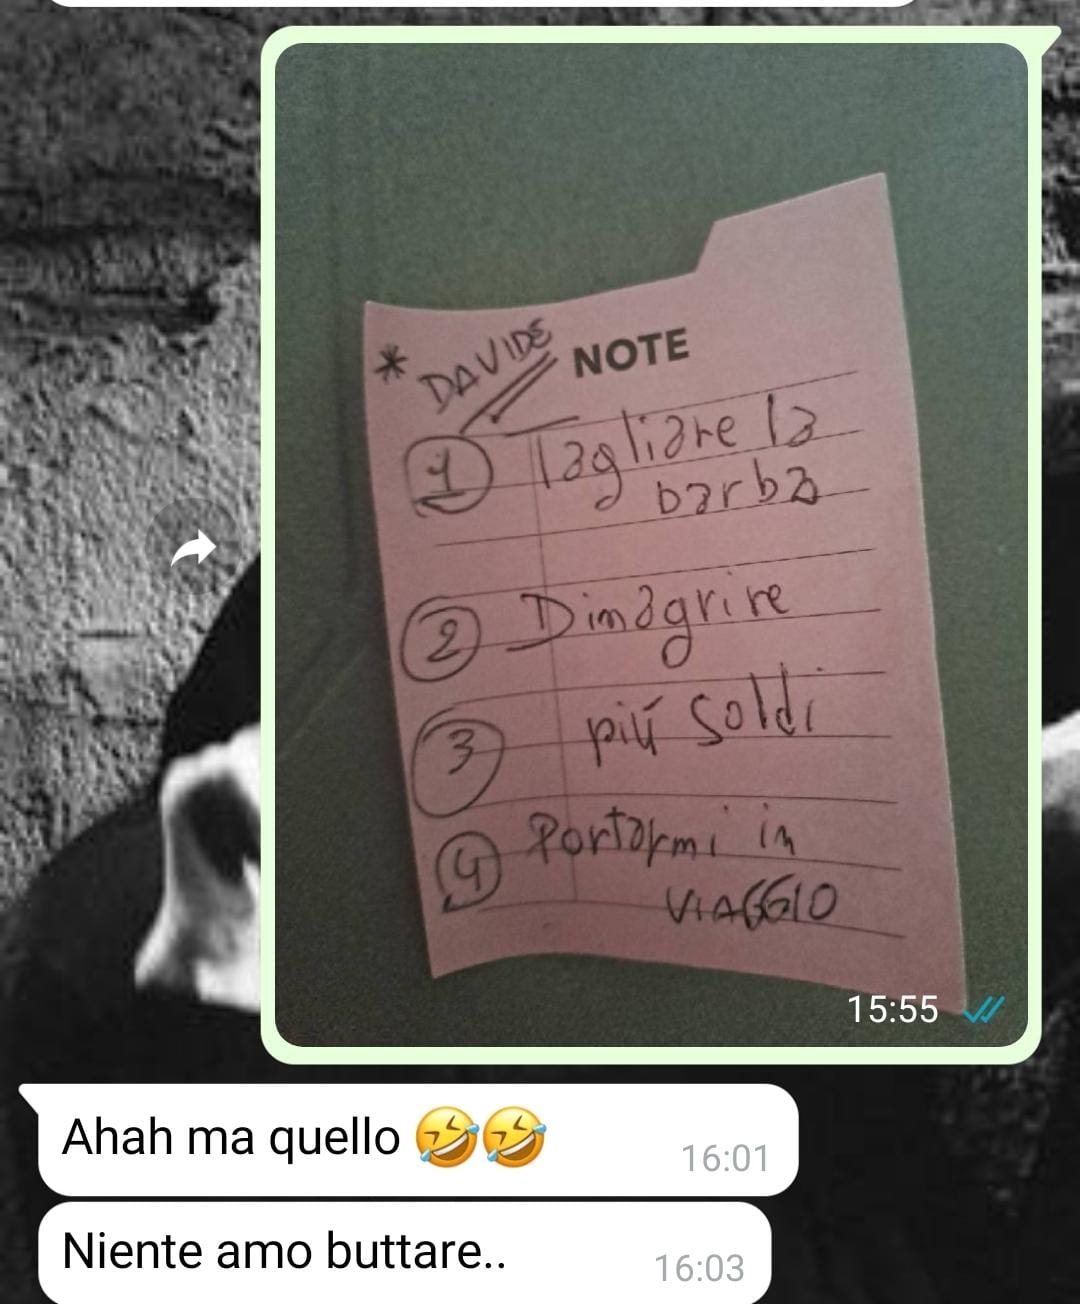 * DAVIDE NOTE
1 Tagliare la
barba
2 Dimagrire
3 più soldi
4 Portarmi in
VIAGGIO
15:55
Ahah ma quello 🤣🤣
16:01
Niente amo buttare..
16:03